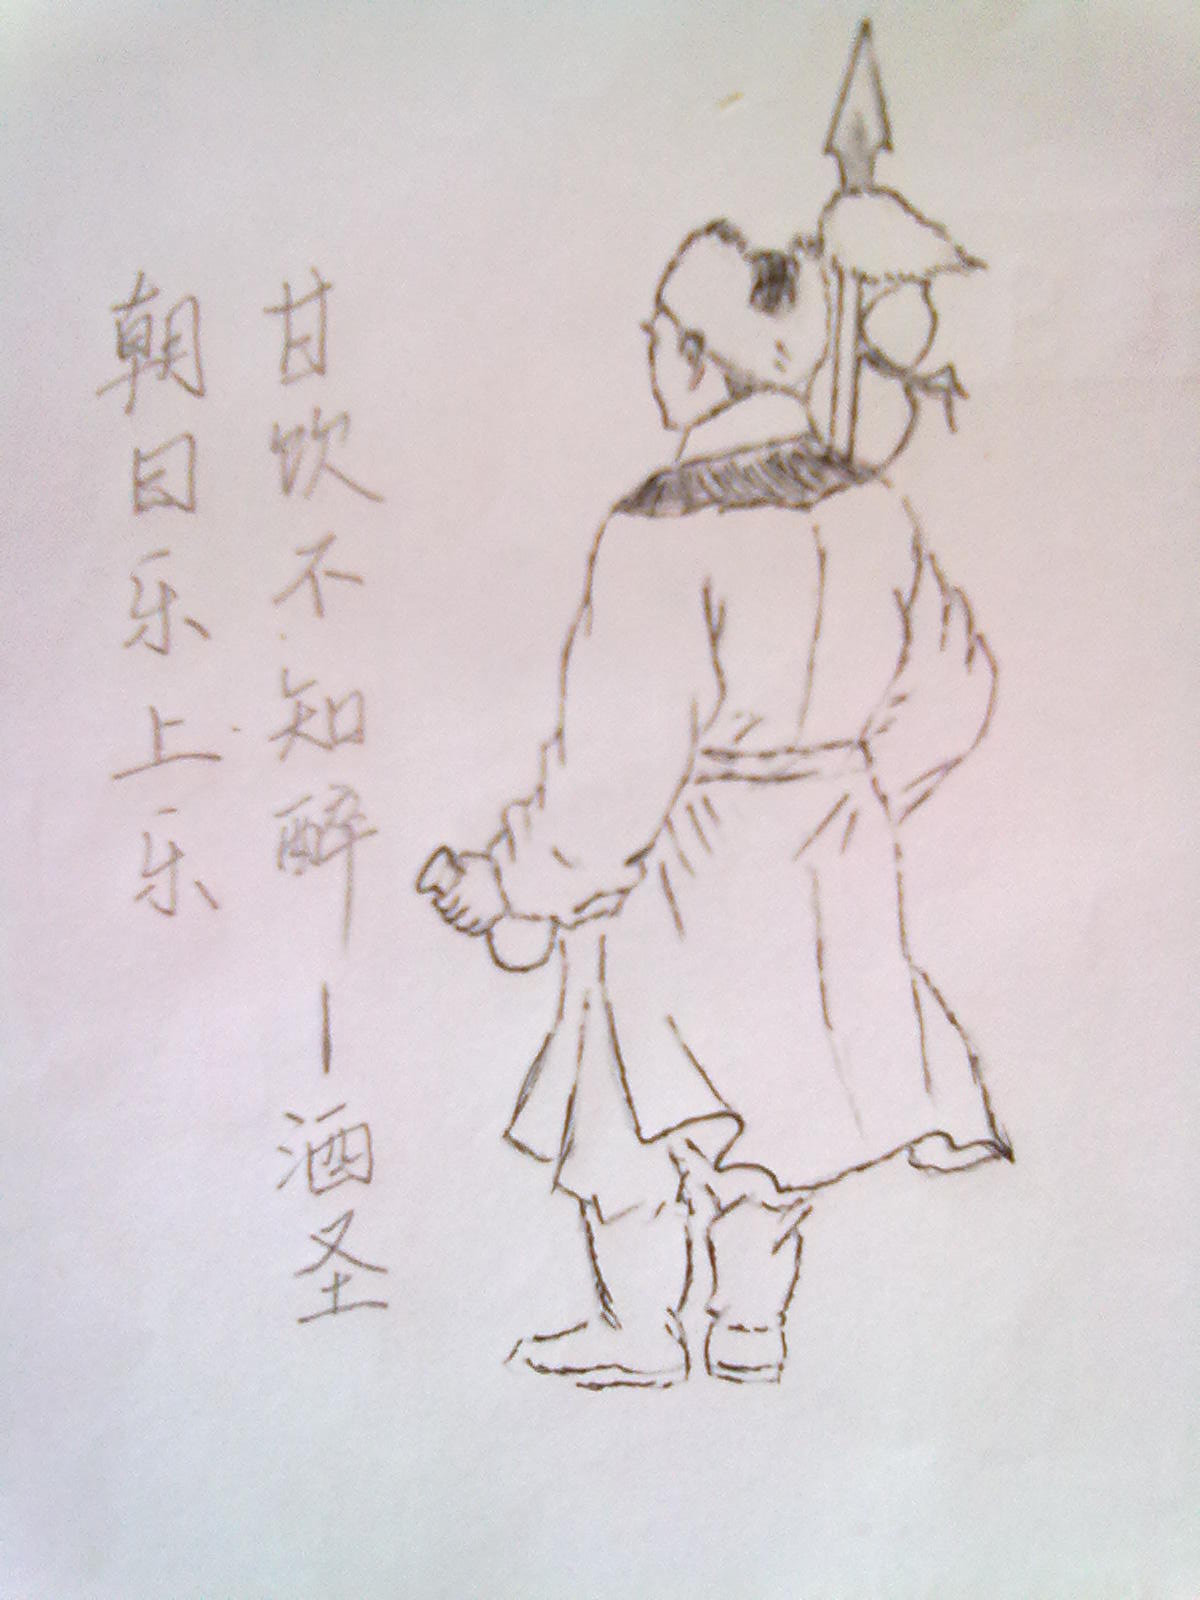 甘饮不知醉—酒圣
朝日乐上乐